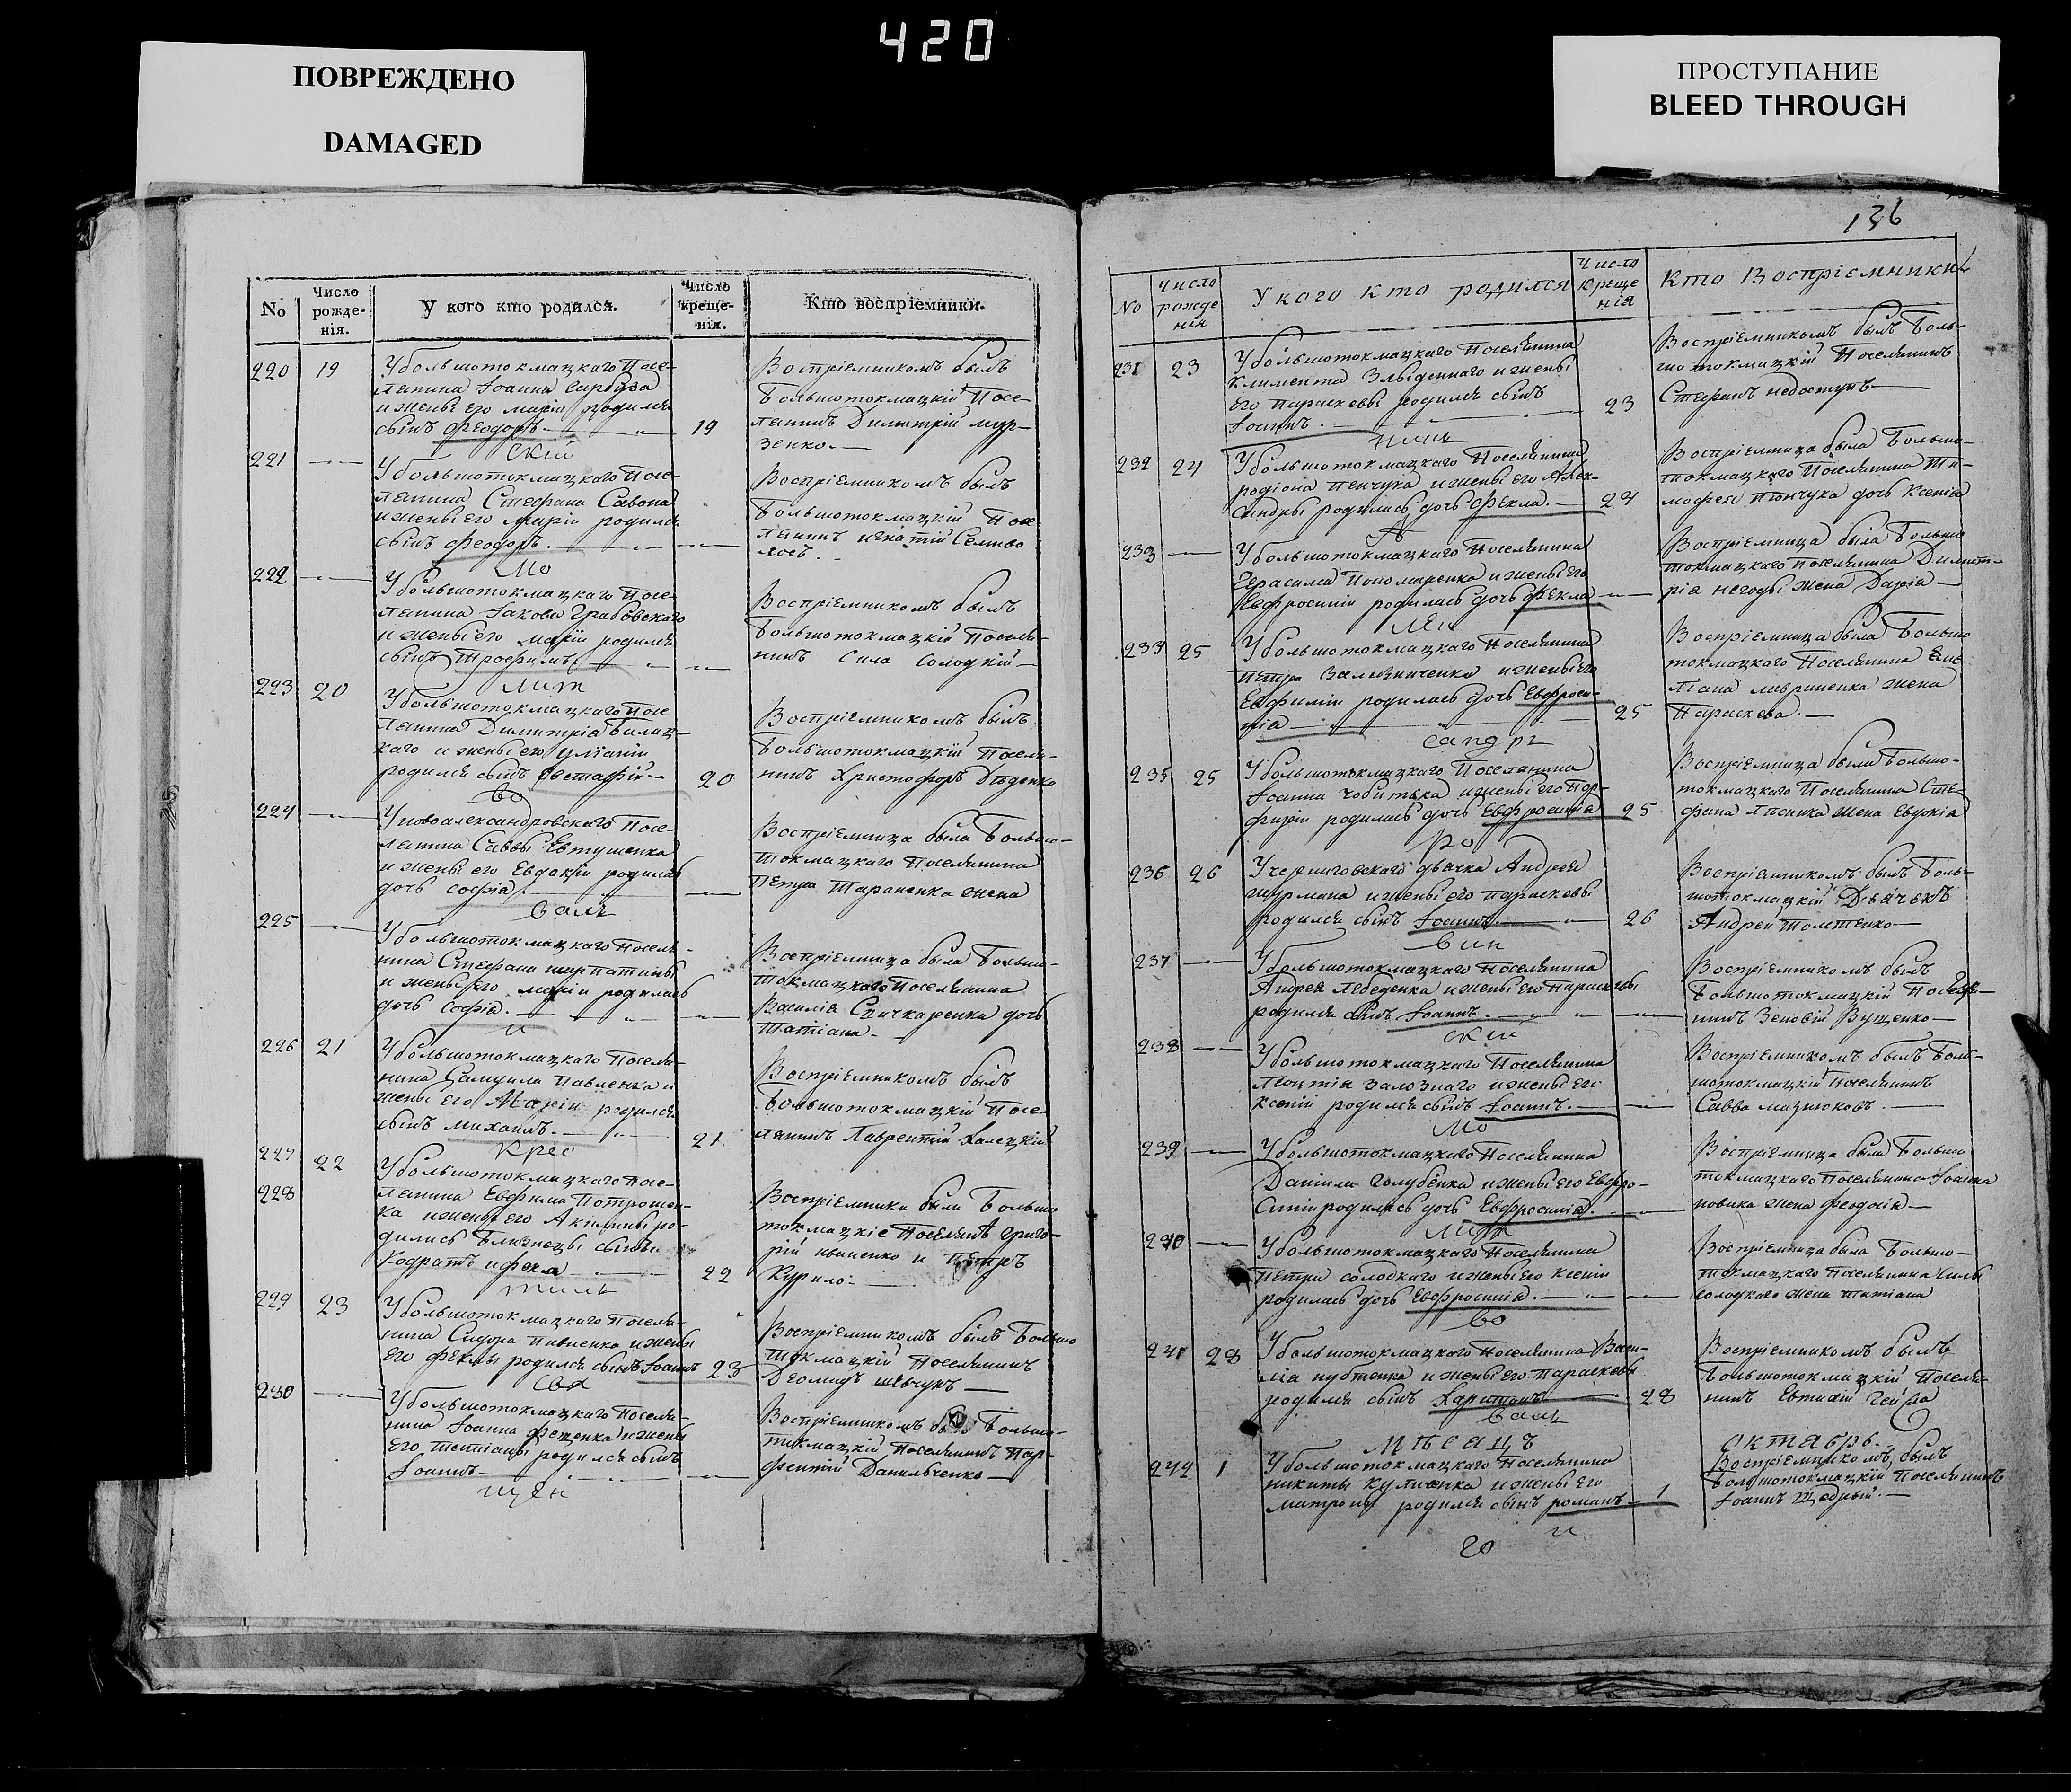 420
ПОВРЕЖДЕНО
DAMAGED
ПРОСТУПАНИЕ
BLEED THROUGH
136
No
Число рожде-нія.
У кого кто родился.
Число креще-нія.
Кто воспріемники.
220 19
У большотокмацкаго Посе-
лянина Іоанна
и жены его маріи родился
сынъ Феодоръ. 19
Воспріемникомъ былъ
Большотокмацкій Посе-
лянинъ Димитрій мур-
зенко.
скій
221
У большотокмацкаго Посе-
лянина Стефана Савона
и жены его маріи родился
сынъ феодоръ.
Воспріемникомъ былъ
Большотокмацкій Посе
лянинъ игнатій Селиво
мо
222
У большотокмацкаго Посе
лянина Іакова Грабовскаго
и жены его маріи родился
сынъ Трофимъ
Воспріемникомъ былъ
Большотокмацкій Поселя-
нинъ Сила Солодкій
лит
223 20
У большотокмацкаго Посе
лянина Димитрія Билец-
каго и жены его Уліаніи
родился сынъ Евстафій. 20
Воспріемникомъ былъ
Большотокмацкій Поселя-
нинъ Христофоръ Диденко
во
224
У новоалександровскаго Посе-
лянина Саввы Евтушенка
и жены его Евдокіи родилась
дочь софія.
Воспріемница была Большо-
токмацкаго Поселянина
Петра Тараненка жена
валъ
225
У большотокмацкаго Поселя-
нина Стефана
и жены его маріи родилась
дочь Софія.
Воспріемница была Большо-
токмацкаго Поселянина
Василія Спичкаренка дочь
Татіана.
и
226 21
У большотокмацкаго Поселя-
нина Самуила Павленка и
жены его Маріи родился
сынъ михаилъ. 21
Воспріемникомъ былъ
Большотокмацкій Посе-
лянинъ Лаврентій Халецкій
Крес
227 22
228
У большотокмацкаго Посе-
лянина Евфима Потрошен-
ка и жены его Акилины ро-
дились Близнецы сынъ
Кодратъ и фекла 22
Воспріемники были Большо
токмацкіе Поселяне Григо-
рій ивченко и Петръ
Курило.
тилъ
229 23
У большотокмацкаго Поселя-
нина Сидора Павленка и жены
его феклы родился сынъ Іоаннъ 23
Воспріемникомъ былъ Большо
токмацкій Поселянинъ
Деомидъ шевчукъ
свя
230
У большотокмацкаго Поселя-
нина Іоанна фещенка и жены
его татіаны родился сынъ
Іоаннъ
Воспріемникомъ былъ Большо-
токмацкій Поселянинъ Пар-
фентій Данильченко
щен
No
Число рожде нія
У кого кто родился
Число креще нія
Кто Воспріемники
231 23
У большотокмацкаго Поселянина
Климента и жены
его параскевы родился сынъ
Іоаннъ. 23
Воспріемникомъ былъ Боль-
шотокмацкій Поселянинъ
Стефанъ недоступъ
никъ
232 24
У большотокмацкаго Поселянина
родіона Пенчука и жены его Алек-
сандры родилась дочь Фекла. 24
Воспріемница была Большо-
токмацкаго Поселянина Ти-
мофея Пенчука дочь Ксенія
А
233
У большотокмацкаго Поселянина
Герасима Пономаренка и жены его
Евфросиніи родилась дочь Фекла
Воспріемница была Большо
токмацкаго поселянина Димит-
рія негоды жена Дарія
лек
234 25
У большотокмацкаго Поселянина
петра Зализниченка и жены его
Евфиміи родилась дочь Евфроси-
нія 25
Воспріемница была Большо
токмацкаго Поселянина Еме
ліана лавриненка жена
Параскева.
сандръ
235 25
У большотокмацкаго Поселянина
Іоанна Чобитька и жены его Пор-
фиріи родилась дочь Евфросинія 25
Воспріемница была Большо-
токмацкаго Поселянина Сте-
фана Ляшка жена Евдокія
ро
236 26
У черниговскаго дьячка Андрея
шурмана и жены его параскевы
родился сынъ Іоаннъ. 26
Воспріемникомъ былъ Боль-
шотокмацкій Дьячекъ
Андрей
вин
237
У большотокмацкаго Поселянина
Андрея Лебеденка и жены его Параскевы
родился сынъ Іоаннъ.
Воспріемникомъ былъ
Большотокмацкій Поселя-
нинъ Зеновій Вущенко
скій
238
У большотокмацкаго Поселянина
Леонтія Залознаго и жены его
Ксеніи родился сынъ Іоаннъ.
Воспріемникомъ былъ Боль-
шотокмацкій Поселянинъ
Савва мазнюковъ.
мо
239
У большотокмацкаго Поселянина
Даніила Голубенка и жены его Евфро-
синіи родилась дочь Евфросинія.
Воспріемница была Большо
токмацкаго Поселянина Іоанна
новика жена феодосія.
лит
240
У большотокмацкаго Поселянина
Петра солодкаго и жены его Ксеніи
родилась дочь Евфросинія.
Воспріемница была Большо-
токмацкаго Поселянина силы
солодкаго жена татіана
во
241 28
У большотокмацкаго Поселянина Васи-
лія и жены его Параскевы
родился сынъ Харитонъ 28
Воспріемникомъ былъ
Большотокмацкій Поселя-
нинъ Евтихій Гейда
валъ
Мѣсяцъ Октябрь.
242 1
У большотокмацкаго Поселянина
никиты Куличенка и жены его
матроны родился сынъ романъ 1
Воспріемникомъ былъ
Большотокмацкій Поселянинъ
Іоаннъ Щедрый.
и
20